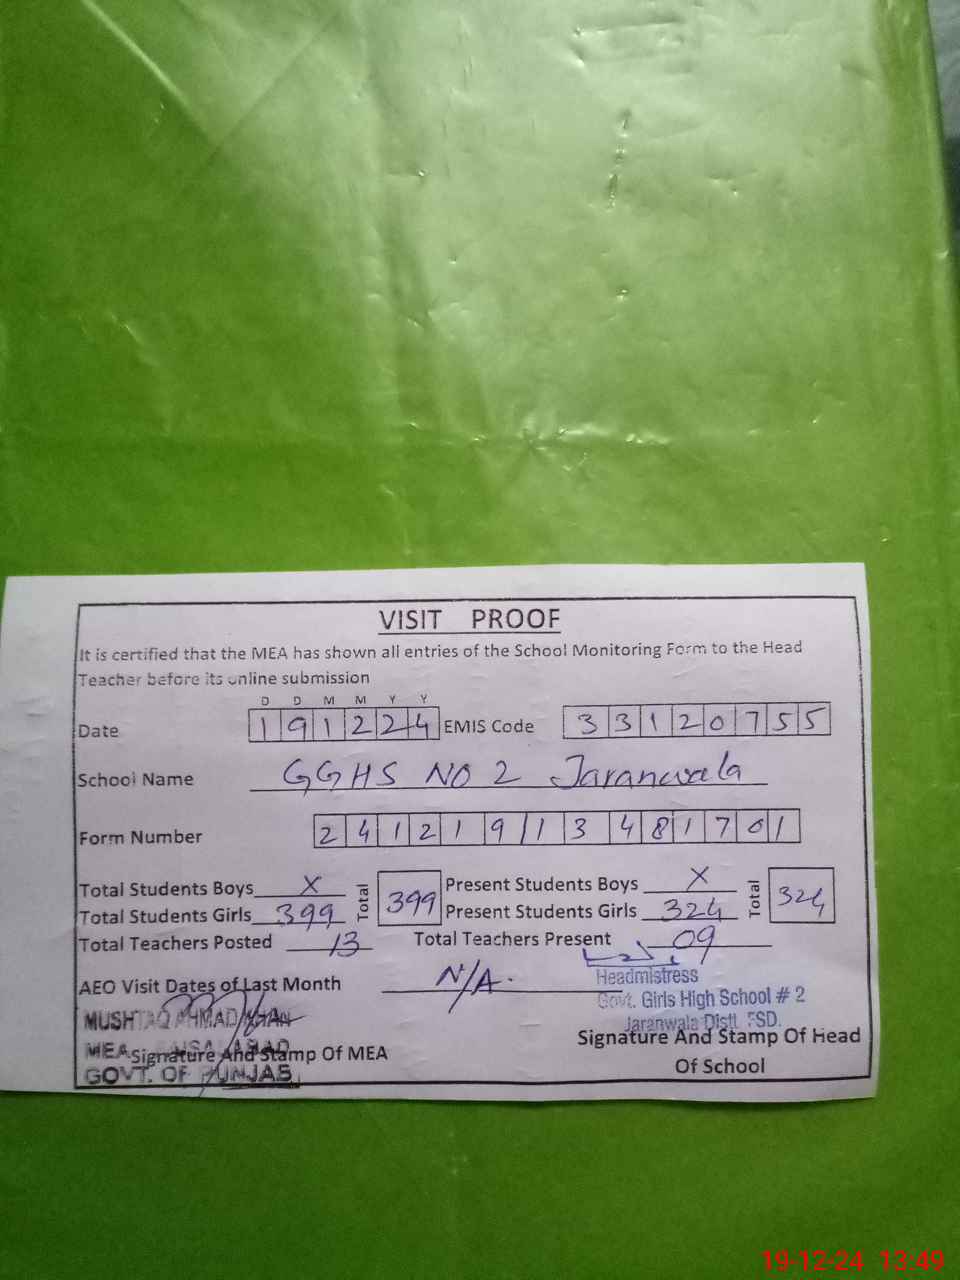 VISIT PROOF
It is certified that the MEA has shown all entries of the School Monitoring Form to the Head
Teacher before its online submission
D D M M Y Y
Date 191224 EMIS Code 33120755
School Name GGHS NO 2 Jaranwala
Form Number 24121913481701
Total Students Boys X Total 399 Present Students Boys X Total 324
Total Students Girls 399 Present Students Girls 324
Total Teachers Posted 13 Total Teachers Present 09
AEO Visit Dates of Last Month N/A.
Headmistress
Govt. Girls High School # 2
Jaranwala Distt. FSD.
MUSHTAQ AHMAD KHAN
MEA FAISALABAD
GOVT. OF PUNJAB
Signature And Stamp Of MEA
Signature And Stamp Of Head
Of School
19-12-24 13:49